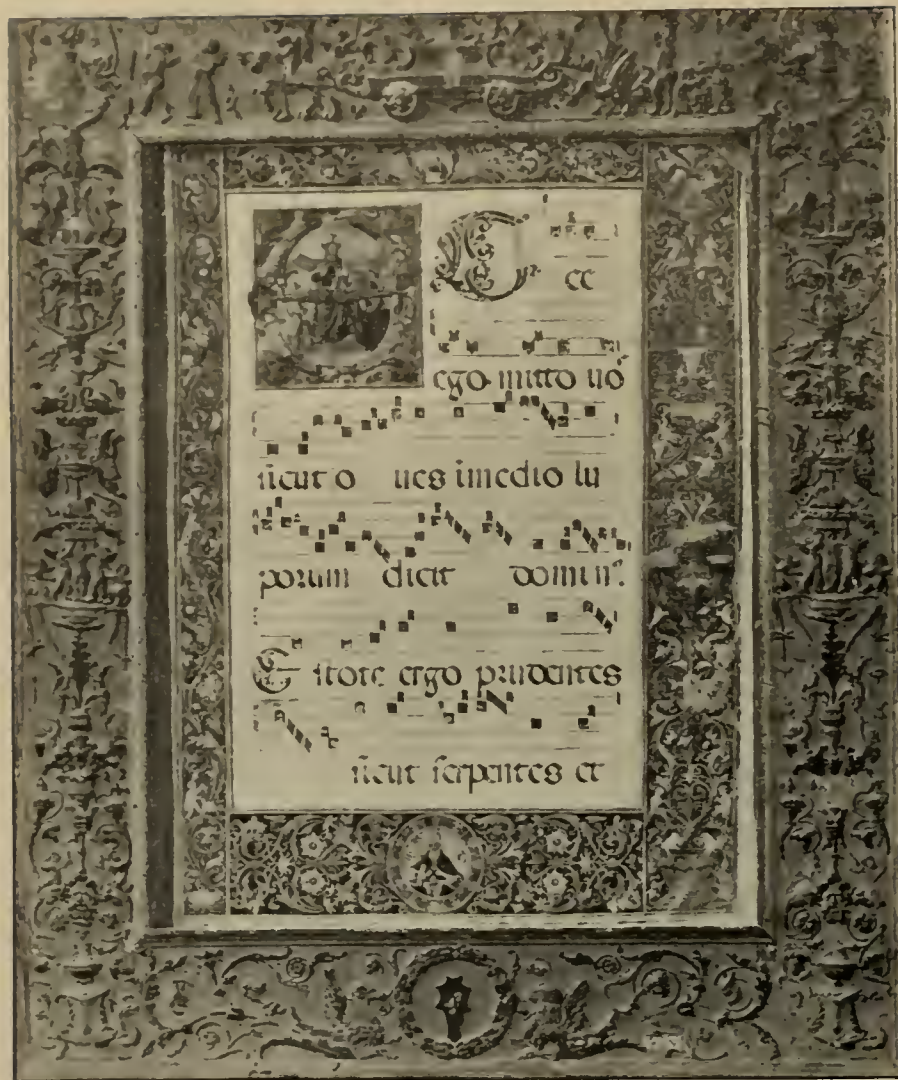 E cc
ego mitto uo
sicut o ues i medio lu
porum dicit domin'.
Estote ergo prudentes
sicut serpentes et